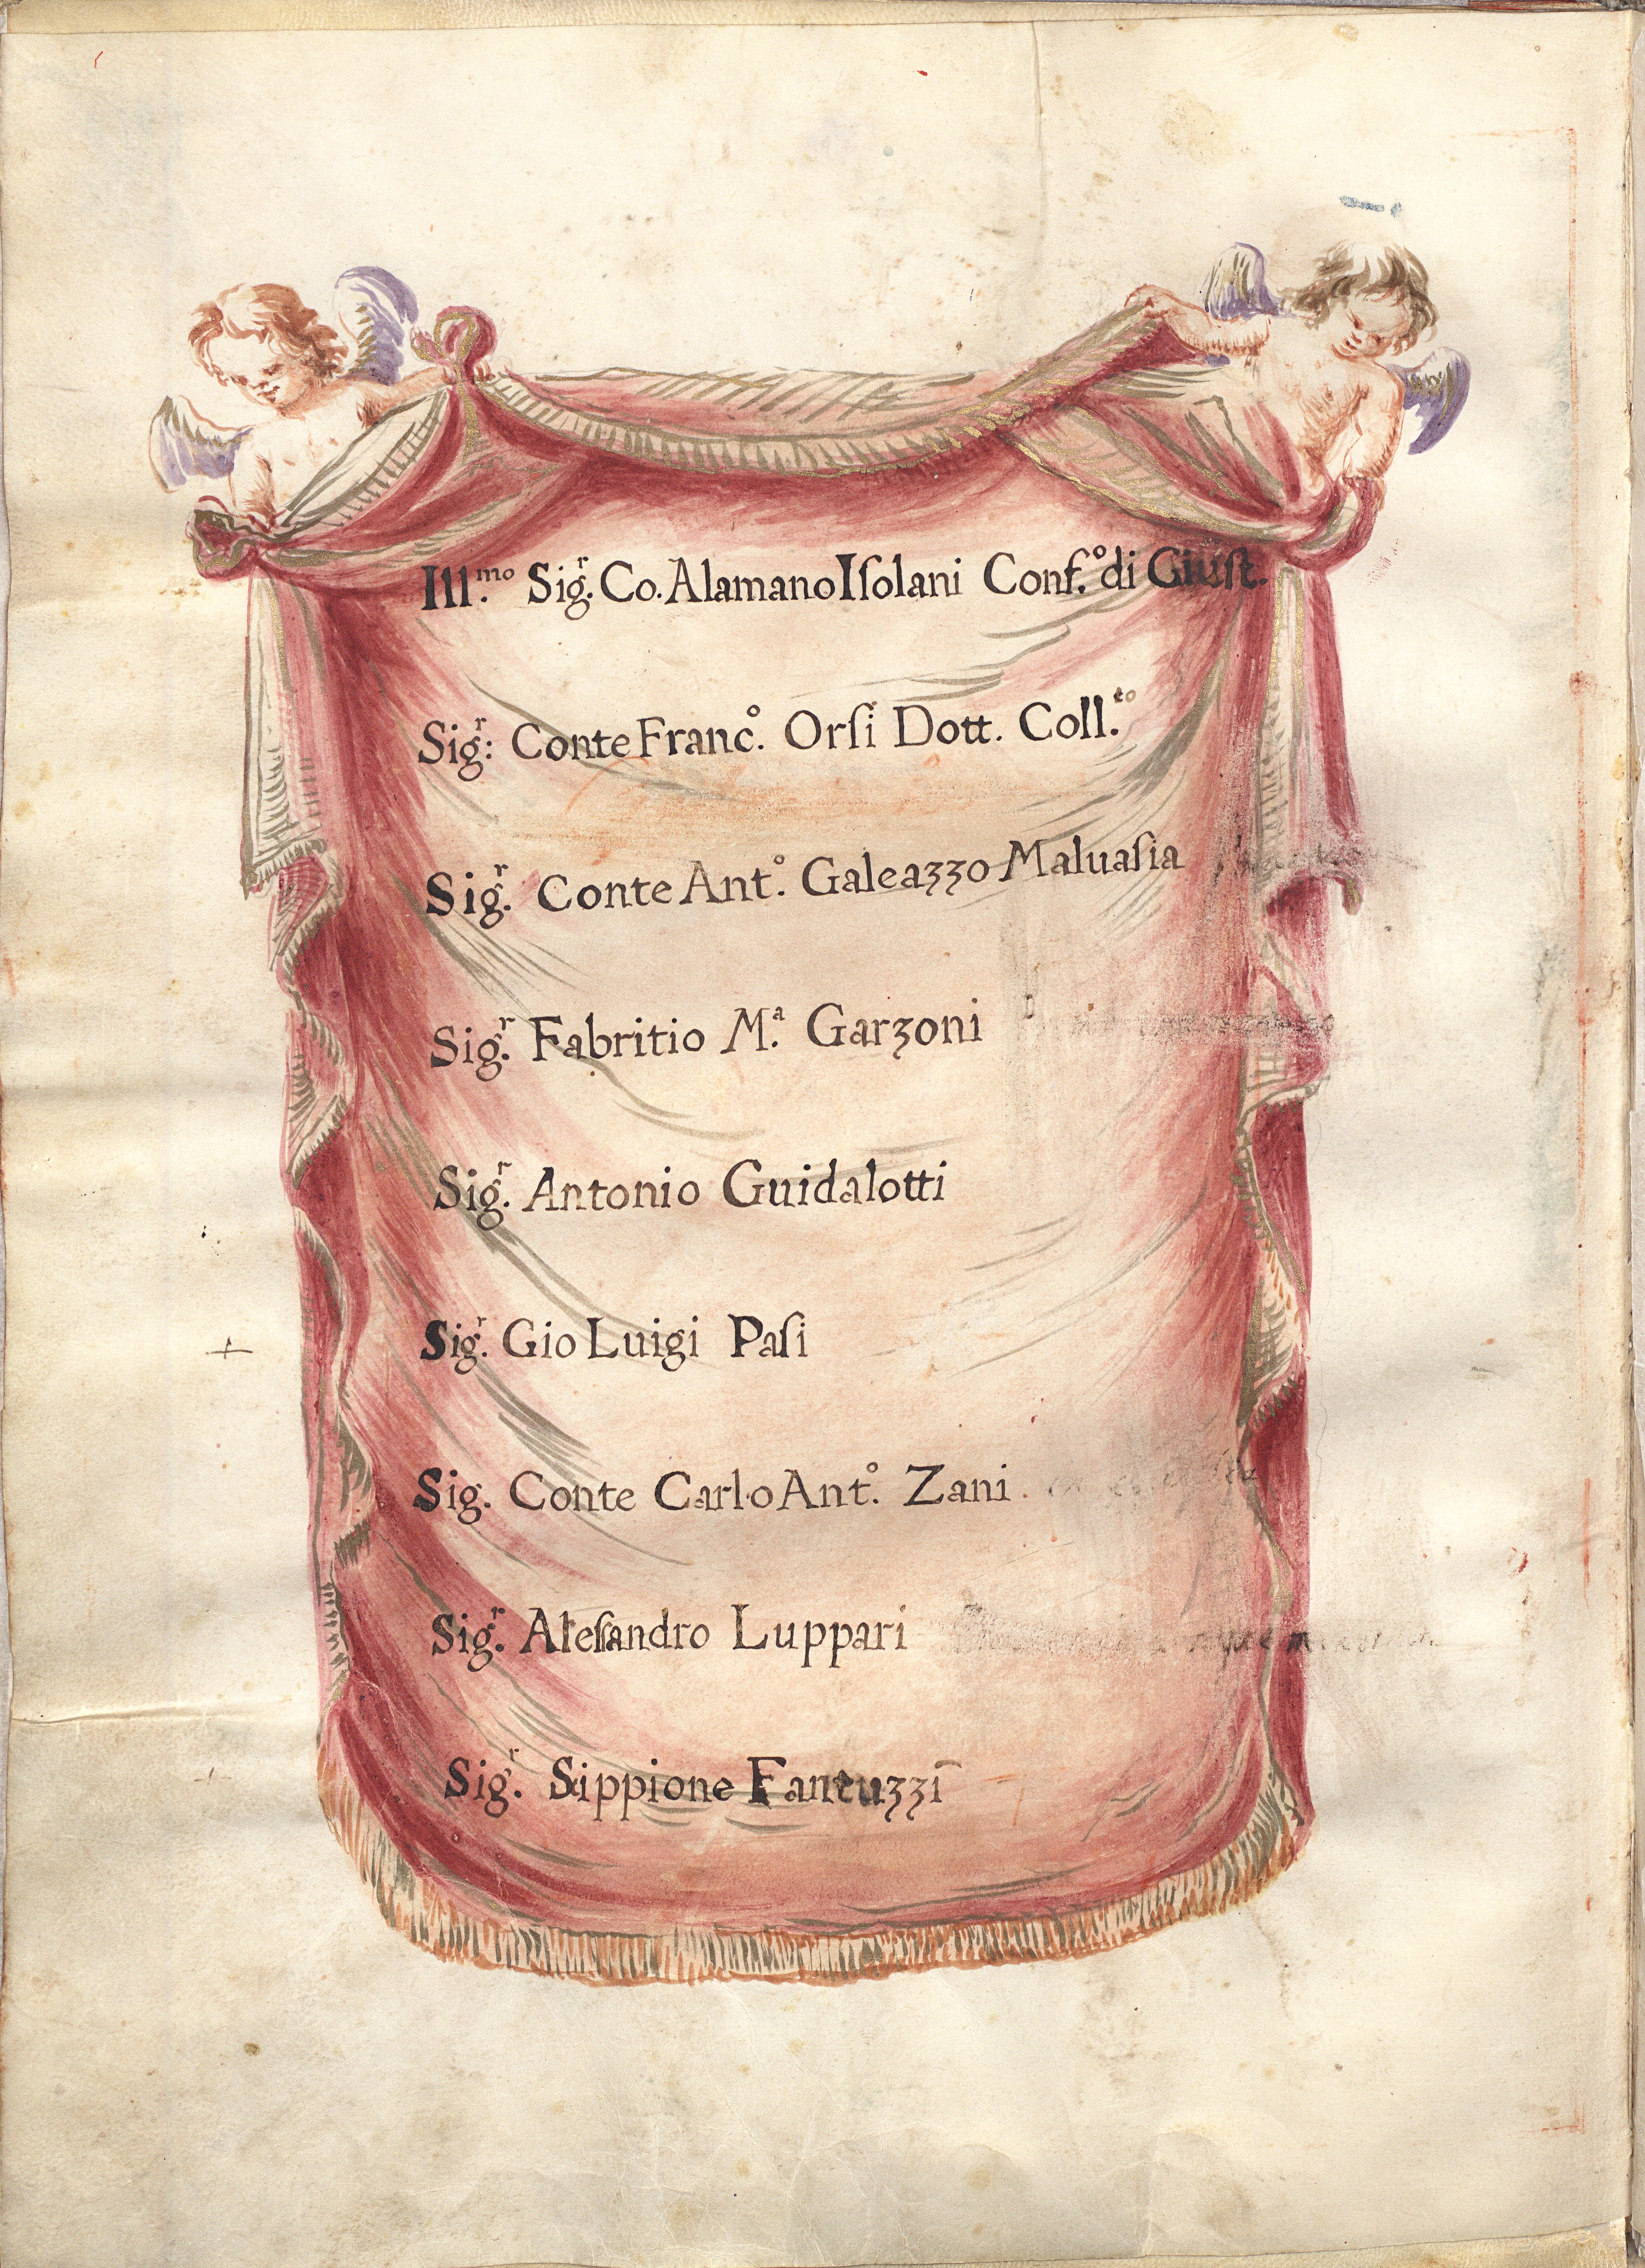 Ill.ᵐᵒ Sigʳ. Co. Alamano Iſolani Conf.º di Giuſt.
Sigʳ: Conte Francº. Orſi Dott. Coll.ᵗᵒ
Sigʳ. Conte Antº. Galeazzo Maluaſia
Sigʳ. Fabritio M.ᵃ Garzoni
Sigʳ. Antonio Guidalotti
Sigʳ. Gio Luigi Paſi
Sig. Conte Carlo Antº. Zani.
Sigʳ. Aleſſandro Luppari
Sigʳ. Sippione Fantuzzi